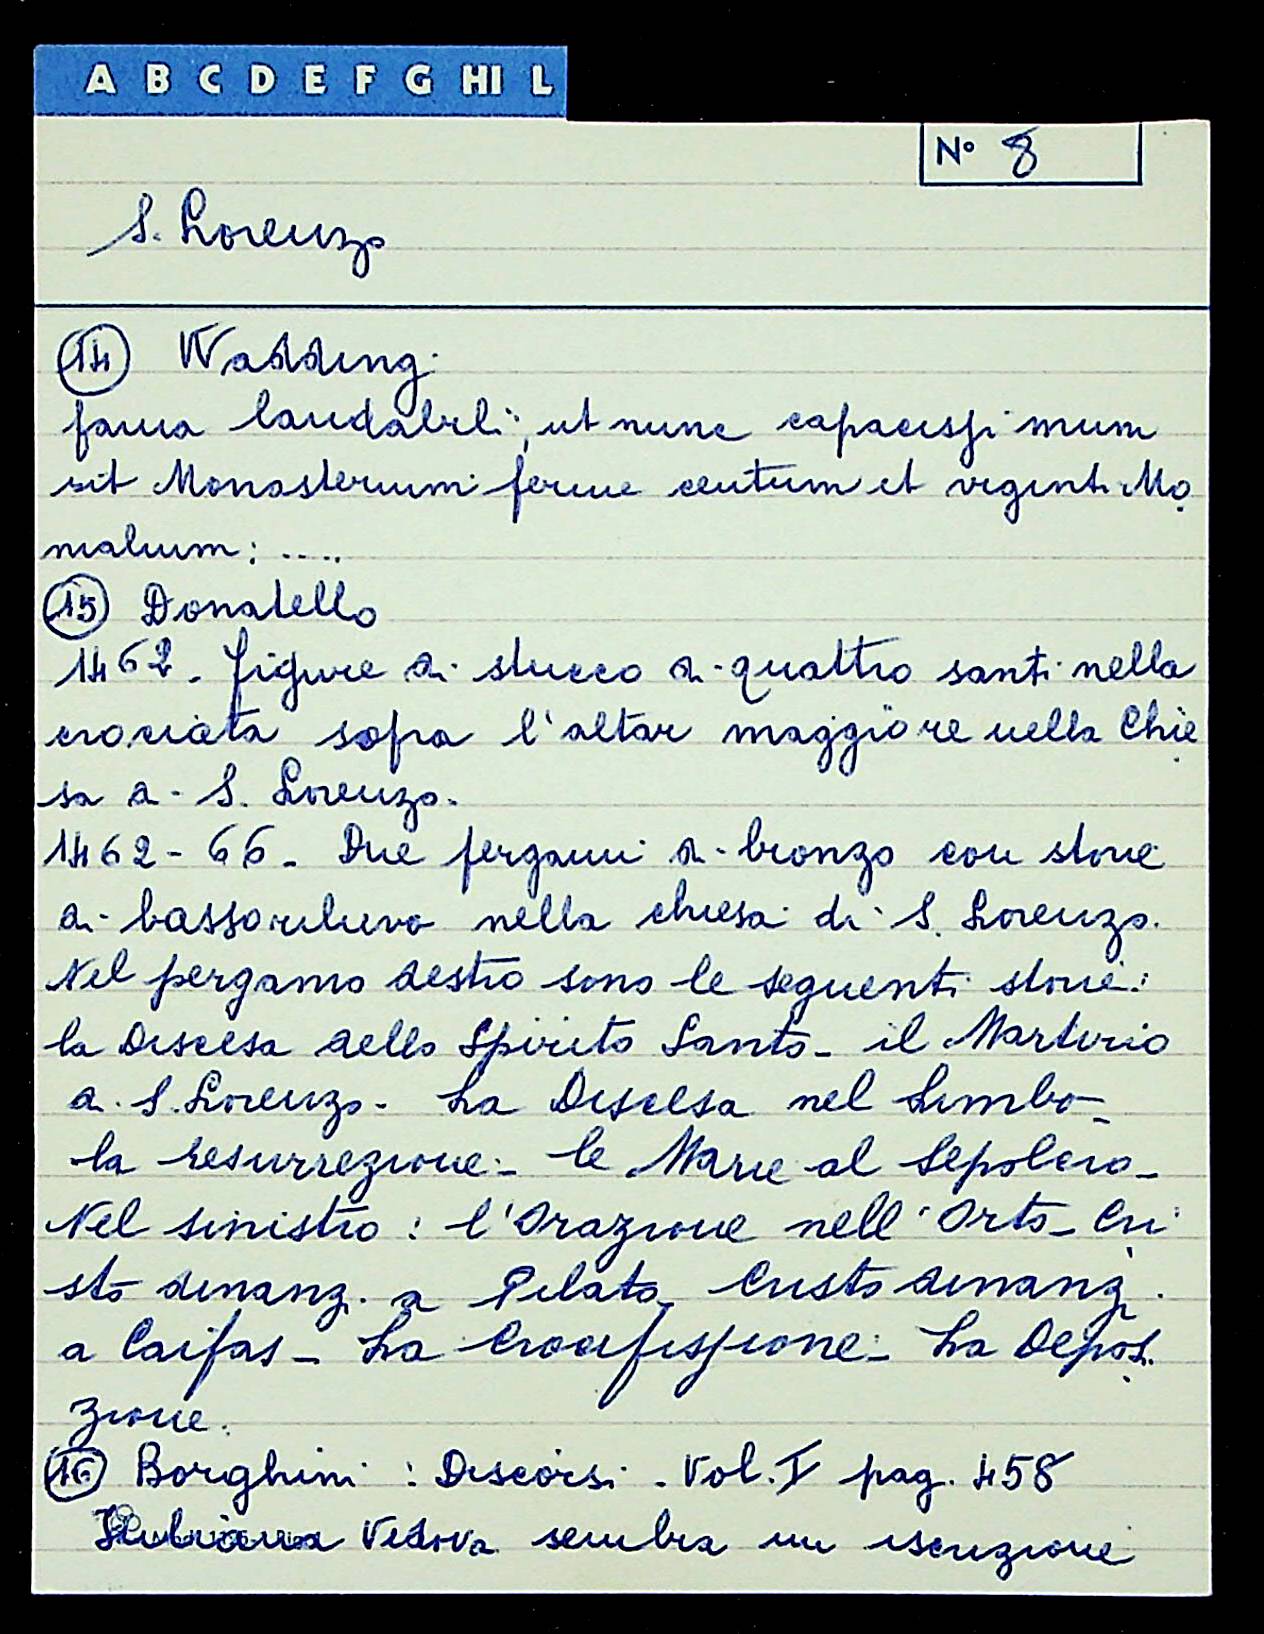 A B C D E F G HI L
N° 8
S. Lorenzo
14 Wadding.
fama laudabili, ut nunc capacissimum
sit Monasterium ferme centum et viginti Mo
nialium: .....
15 Donatello
1462. figure di stucco di quattro santi nella
crociata sopra l'altar maggiore nella Chie
sa di S. Lorenzo.
1462-66. Due pergami di bronzo con storie
di bassorilievo nella chiesa di S. Lorenzo.
Nel pergamo destro sono le seguenti storie:
la Discesa dello Spirito Santo - il Martirio
di S. Lorenzo - La Discesa nel Limbo -
la resurrezione - le Marie al Sepolcro -
Nel sinistro: l'Orazione nell'Orto - Cri
sto dinanzi a Pilato - Cristo dinanzi
a Caifas - La Crocifissione - La Deposi
zione.
16 Borghini: Discorsi. Vol. I pag. 458
Vedova sembra un iscrizione